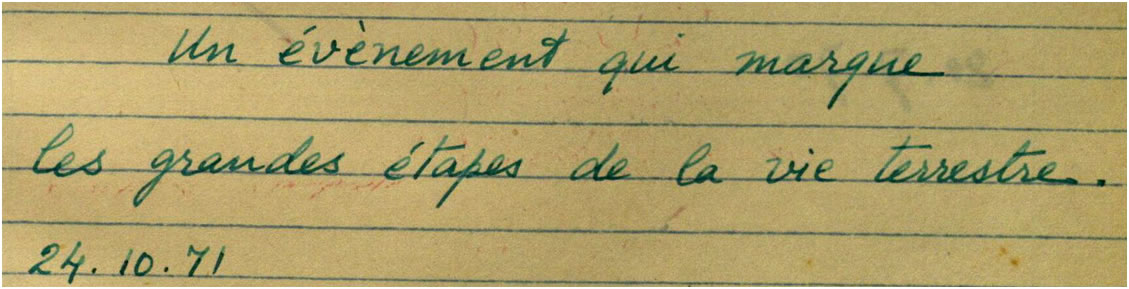 Un évènement qui marque
les grandes étapes de la vie terrestre.
24.10.71